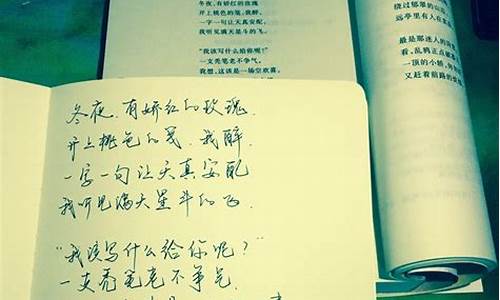 冬夜，有娇红的玫瑰
开上桃色的笺，我醉，
一字一句让天真安配，
我听见满天星斗的飞。
“我该写什么给你呢？”
一支秃笔老不争气。
我想，这该是一场空欢喜。
绕过郁郁的山
远亭里有人在
最是那迷人的
看，乱鸦正点破
一顶的小轿，
又赶着前路的
冬夜.有娇红的玫瑰
开上桃色的笺.我醉.
一字一句让天真安配
我听见满天星斗的飞.
“我该写什么给你呢？”
一支秃笔老不争气.